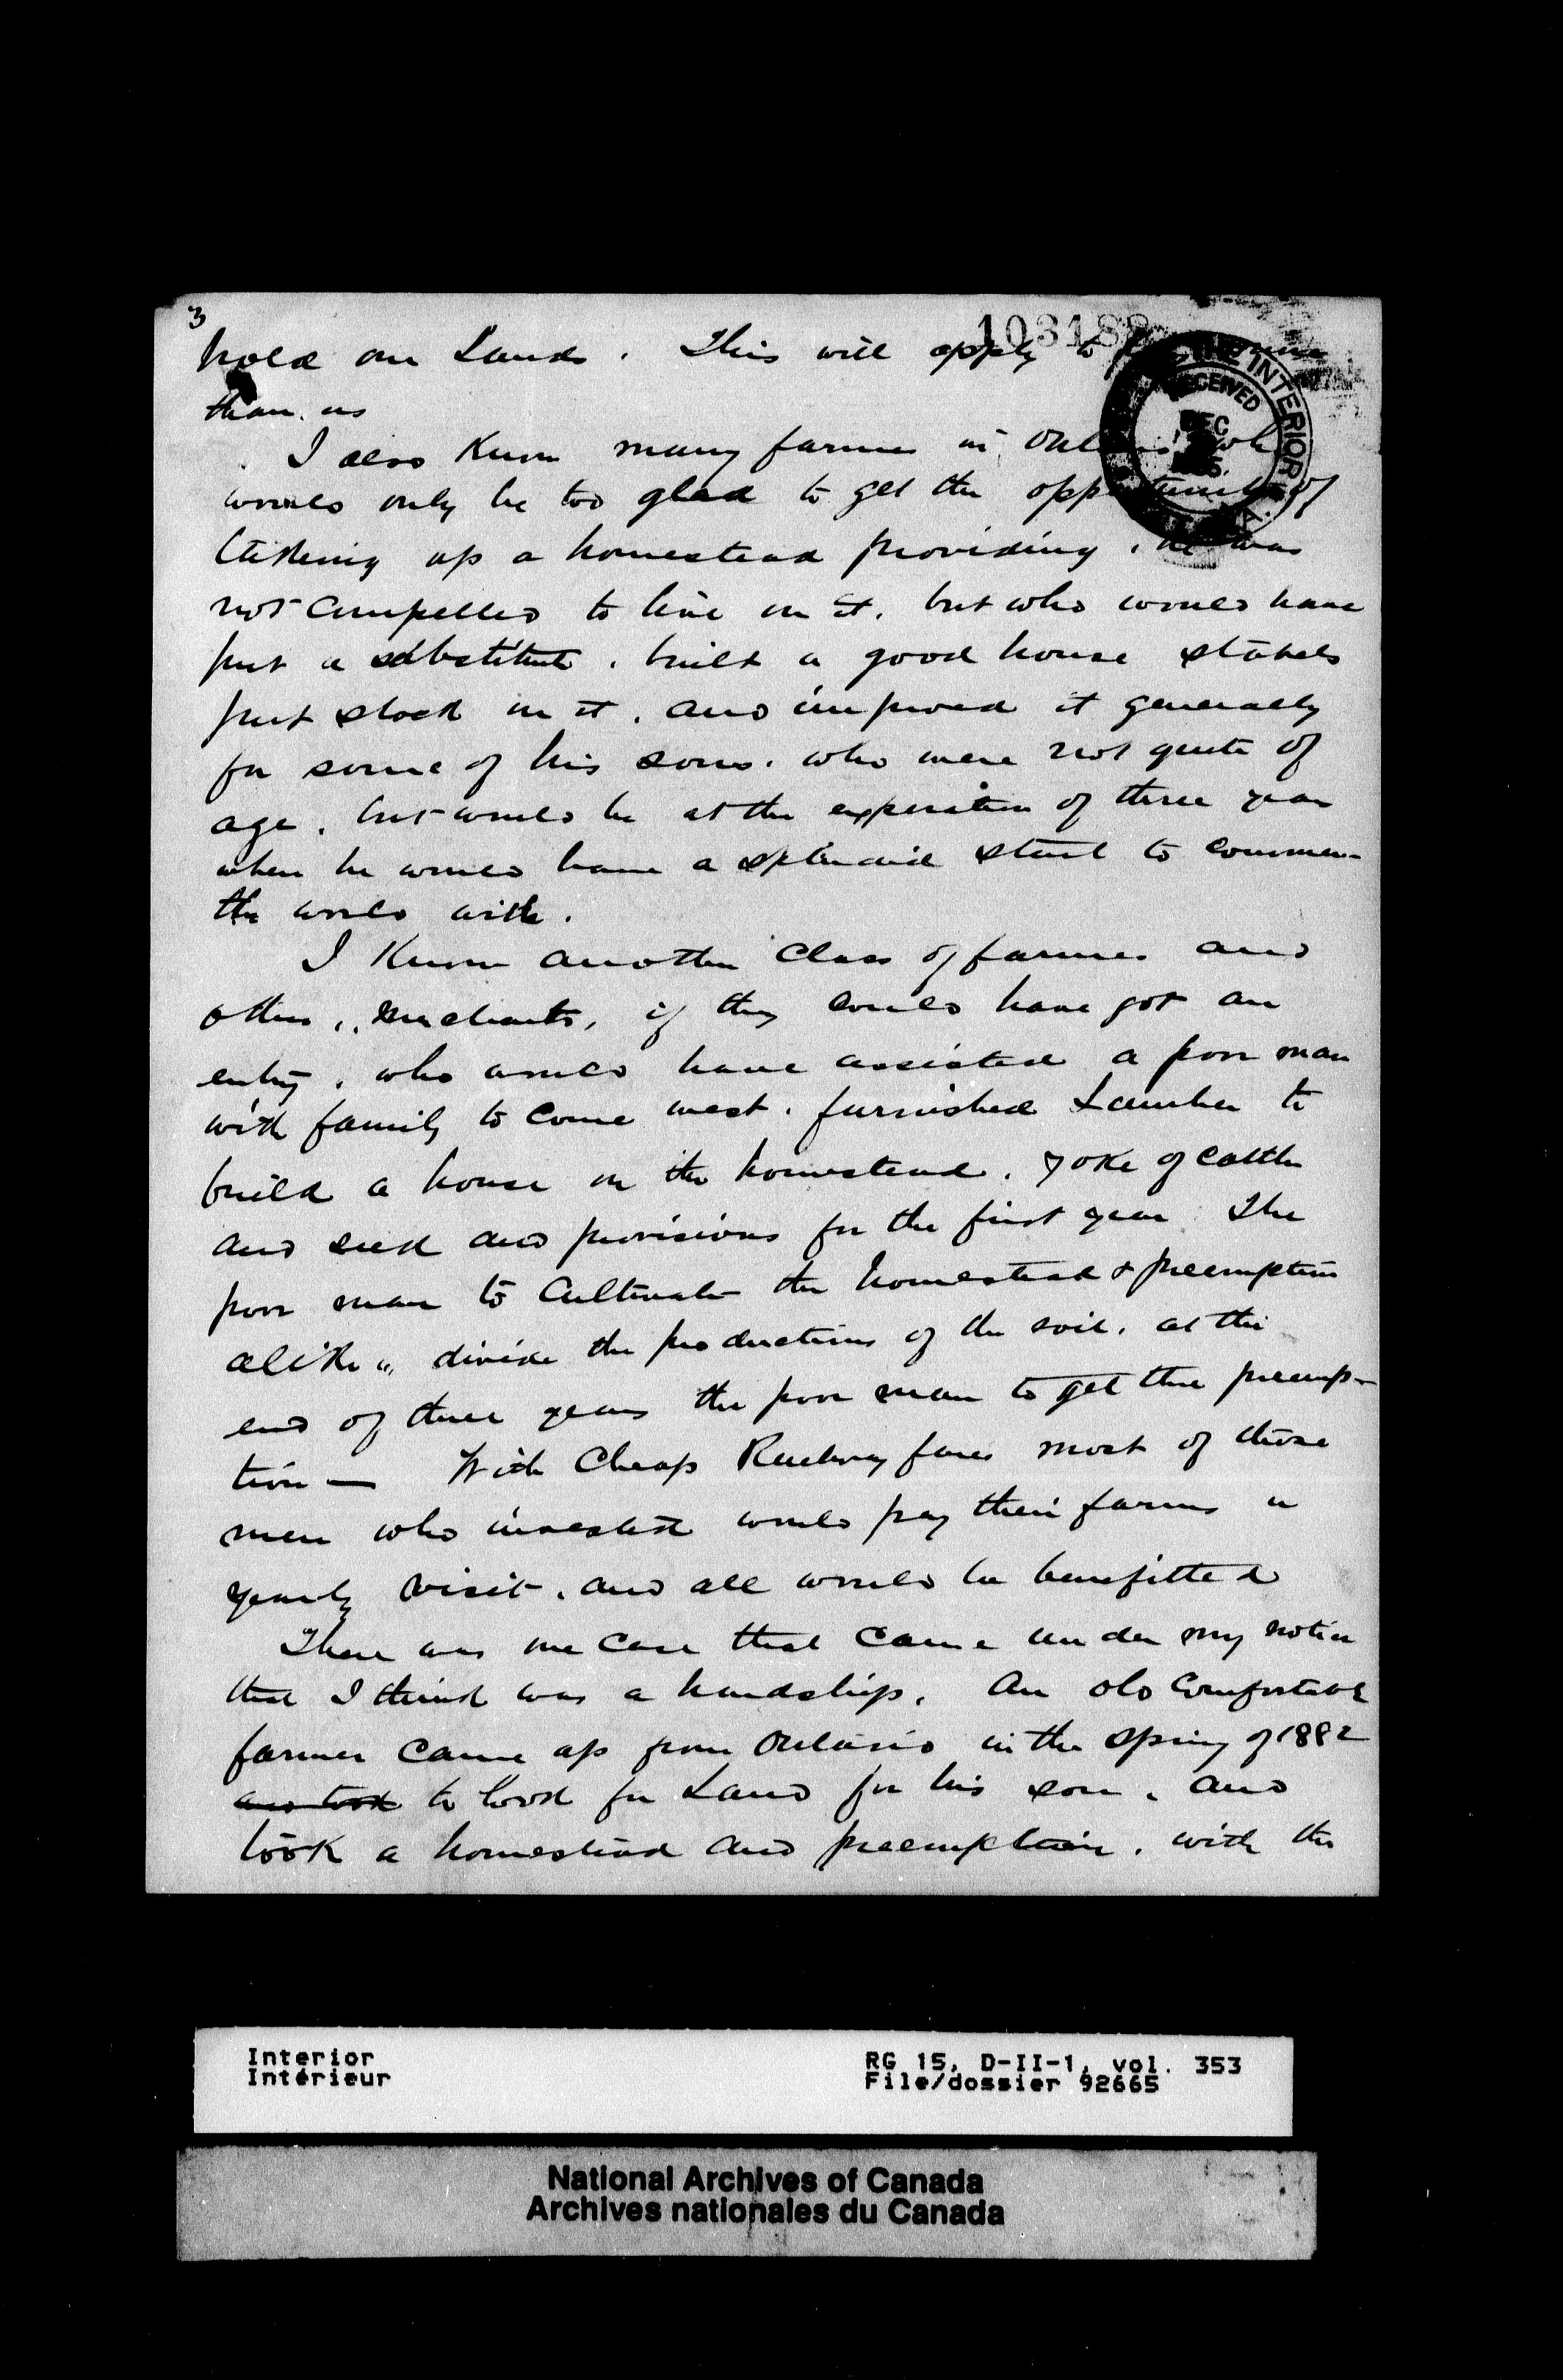 3
103188
hold on Lands. This will apply to
than us
THE INTERIOR
RECEIVED
DEC
I also Know many farmers in Ontario who
would only be too glad to get the opportunity of
takeing up a homestead providing, he was
not compelled to live on it. but who would have
put a substitute. built a good house stables
put stock on it. and improved it generally
for some of his sons. who were not quite of
age. but would be at the experation of three years
when he would have a splendid start to commence
the world with.
I Know another Class of farmers and
others, merchants, if they could have got an
entry. who would have assisted a poor man
with family to come west. furnished Lumber to
build a house on the homestead. yoke of cattle
and seed and provisions for the first year The
poor man to Cultivate the homestead & preemption
alike, divide the productions of the soil. at the
end of three years the poor man to get the preemp-
tion — With Cheap Railway fares most of those
men who invested would pay their farms a
yearly visit. and all would be benefitted
There was one Case that came under my notice
that I think was a hardship. An old Comfortable
farmer came up from Ontario in the Spring of 1882
and took to look for Land for his son. and
took a homestead and preemption. with the
Interior
Intérieur
RG 15, D-II-1, vol. 353
File/dossier 92665
National Archives of Canada
Archives nationales du Canada